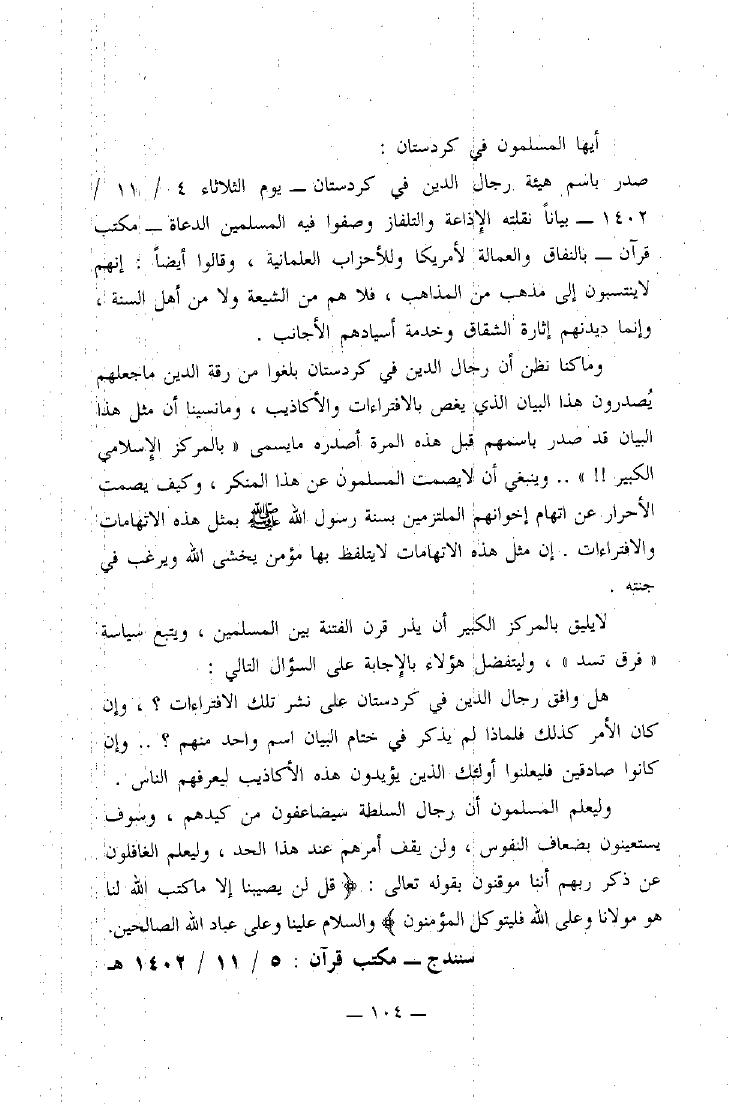 أيها المسلمون في كردستان :
صدر باسم هيئة رجال الدين في كردستان ــ يوم الثلاثاء ٤ / ١١ /
١٤٠٢ ــ بياناً نقلته الإذاعة والتلفاز وصفوا فيه المسلمين الدعاة ــ مكتب
قرآن ــ بالنفاق والعمالة لأمريكا وللأحزاب العلمانية ، وقالوا أيضاً : إنهم
لاينتسبون إلى مذهب من المذاهب ، فلا هم من الشيعة ولا من أهل السنة ،
وإنما ديدنهم إثارة الشقاق وخدمة أسيادهم الأجانب .
وماكنا نظن أن رجال الدين في كردستان بلغوا من رقة الدين ماجعلهم
يُصدرون هذا البيان الذي يغص بالافتراءات والأكاذيب ، ومانسينا أن مثل هذا
البيان قد صدر باسمهم قبل هذه المرة أصدره مايسمى « بالمركز الإسلامي
الكبير !! » .. وينبغي أن لايصمت المسلمون عن هذا المنكر ، وكيف يصمت
الأحرار عن اتهام إخوانهم الملتزمين بسنة رسول الله ﷺ بمثل هذه الاتهامات
والافتراءات . إن مثل هذه الاتهامات لايتلفظ بها مؤمن يخشى الله ويرغب في
جنته .
لايليق بالمركز الكبير أن يذر قرن الفتنة بين المسلمين ، ويتبع سياسة
« فرق تسد » ، وليتفضل هؤلاء بالإجابة على السؤال التالي :
هل وافق رجال الدين في كردستان على نشر تلك الافتراءات ؟ ، وإن
كان الأمر كذلك فلماذا لم يذكر في ختام البيان اسم واحد منهم ؟ .. وإن
كانوا صادقين فليعلنوا أولئك الذين يؤيدون هذه الأكاذيب ليعرفهم الناس .
وليعلم المسلمون أن رجال السلطة سيضاعفون من كيدهم ، وسوف
يستعينون بضعاف النفوس ، ولن يقف أمرهم عند هذا الحد ، وليعلم الغافلون
عن ذكر ربهم أننا موقنون بقوله تعالى : ﴿ قل لن يصيبنا إلا ماكتب الله لنا
هو مولانا وعلى الله فليتوكل المؤمنون ﴾ والسلام علينا وعلى عباد الله الصالحين.
سنندج ــ مكتب قرآن : ٥ / ١١ / ١٤٠٢ هـ
ــ ١٠٤ ــ